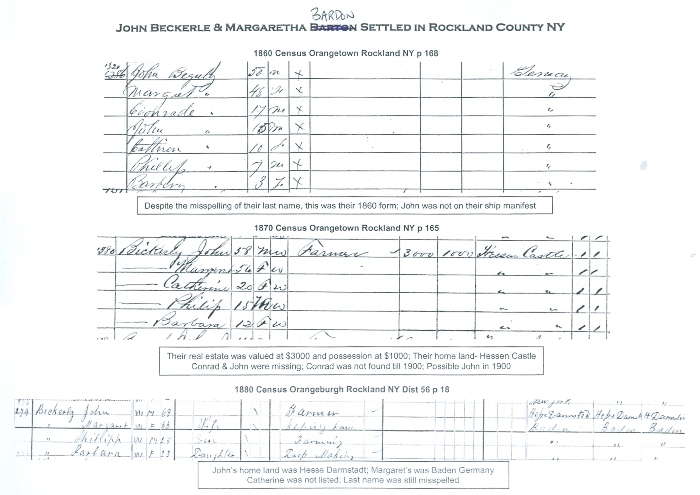 BARDON
JOHN BECKERLE & MARGARETHA BARTON SETTLED IN ROCKLAND COUNTY NY
1860 Census Orangetown Rockland NY p 168
John 50 m x Germany
Margaret " 45 F x "
Conrade " 17 m x "
John " 15 m x "
Cathren " 10 F x "
Phillip " 7 m x "
Barbery " 3 F x "
Despite the misspelling of their last name, this was their 1860 form; John was not on their ship manifest
1870 Census Orangetown Rockland NY p 165
Bickerly John 58 M W Farmer 3000 1000 Hessen Castle
— Margaret 56 F W " "
— Catherine 20 F W " "
— Philip 15 M W " "
— Barbara 12 F W " "
Their real estate was valued at $3000 and possession at $1000; Their home land- Hessen Castle
Conrad & John were missing; Conrad was not found till 1900; Possible John in 1900
1880 Census Orangeburgh Rockland NY Dist 56 p 18
New York " "
274 Beckerly John W M 69 Farmer Hesse Darmsted
" Margaret W F 66 Wife Keeping house Baden Baden Baden
" Phillipp W M 25 Son Farming " "
" Barbara W F 23 Daughter Dress Making " "
John's home land was Hesse Darmstadt; Margaret's was Baden Germany
Catherine was not listed; Last name was still misspelled